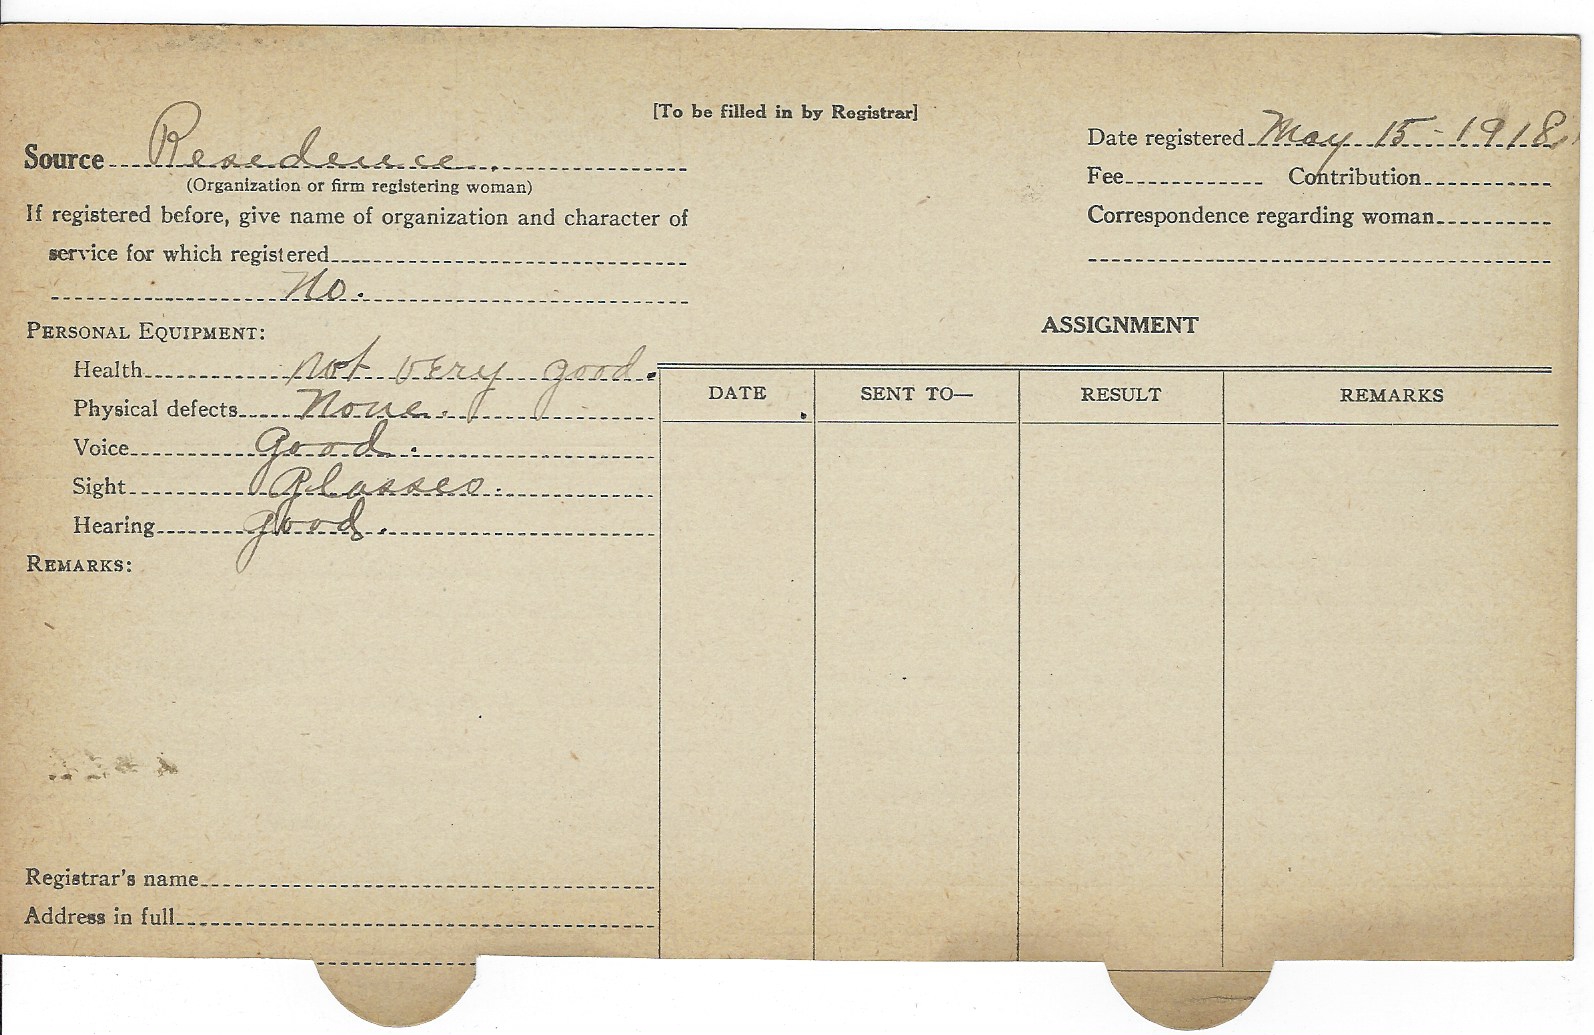 [To be filled in by Registrar]
Source Residence.
(Organization or firm registering woman)
If registered before, give name of organization and character of
service for which registered
No.
Date registered May 15-1918.
Fee Contribution
Correspondence regarding woman
PERSONAL EQUIPMENT:
Health not very good.
Physical defects None.
Voice good.
Sight Glasses.
Hearing good.
REMARKS:
Registrar's name
Address in full
ASSIGNMENT
DATE SENT TO— RESULT REMARKS